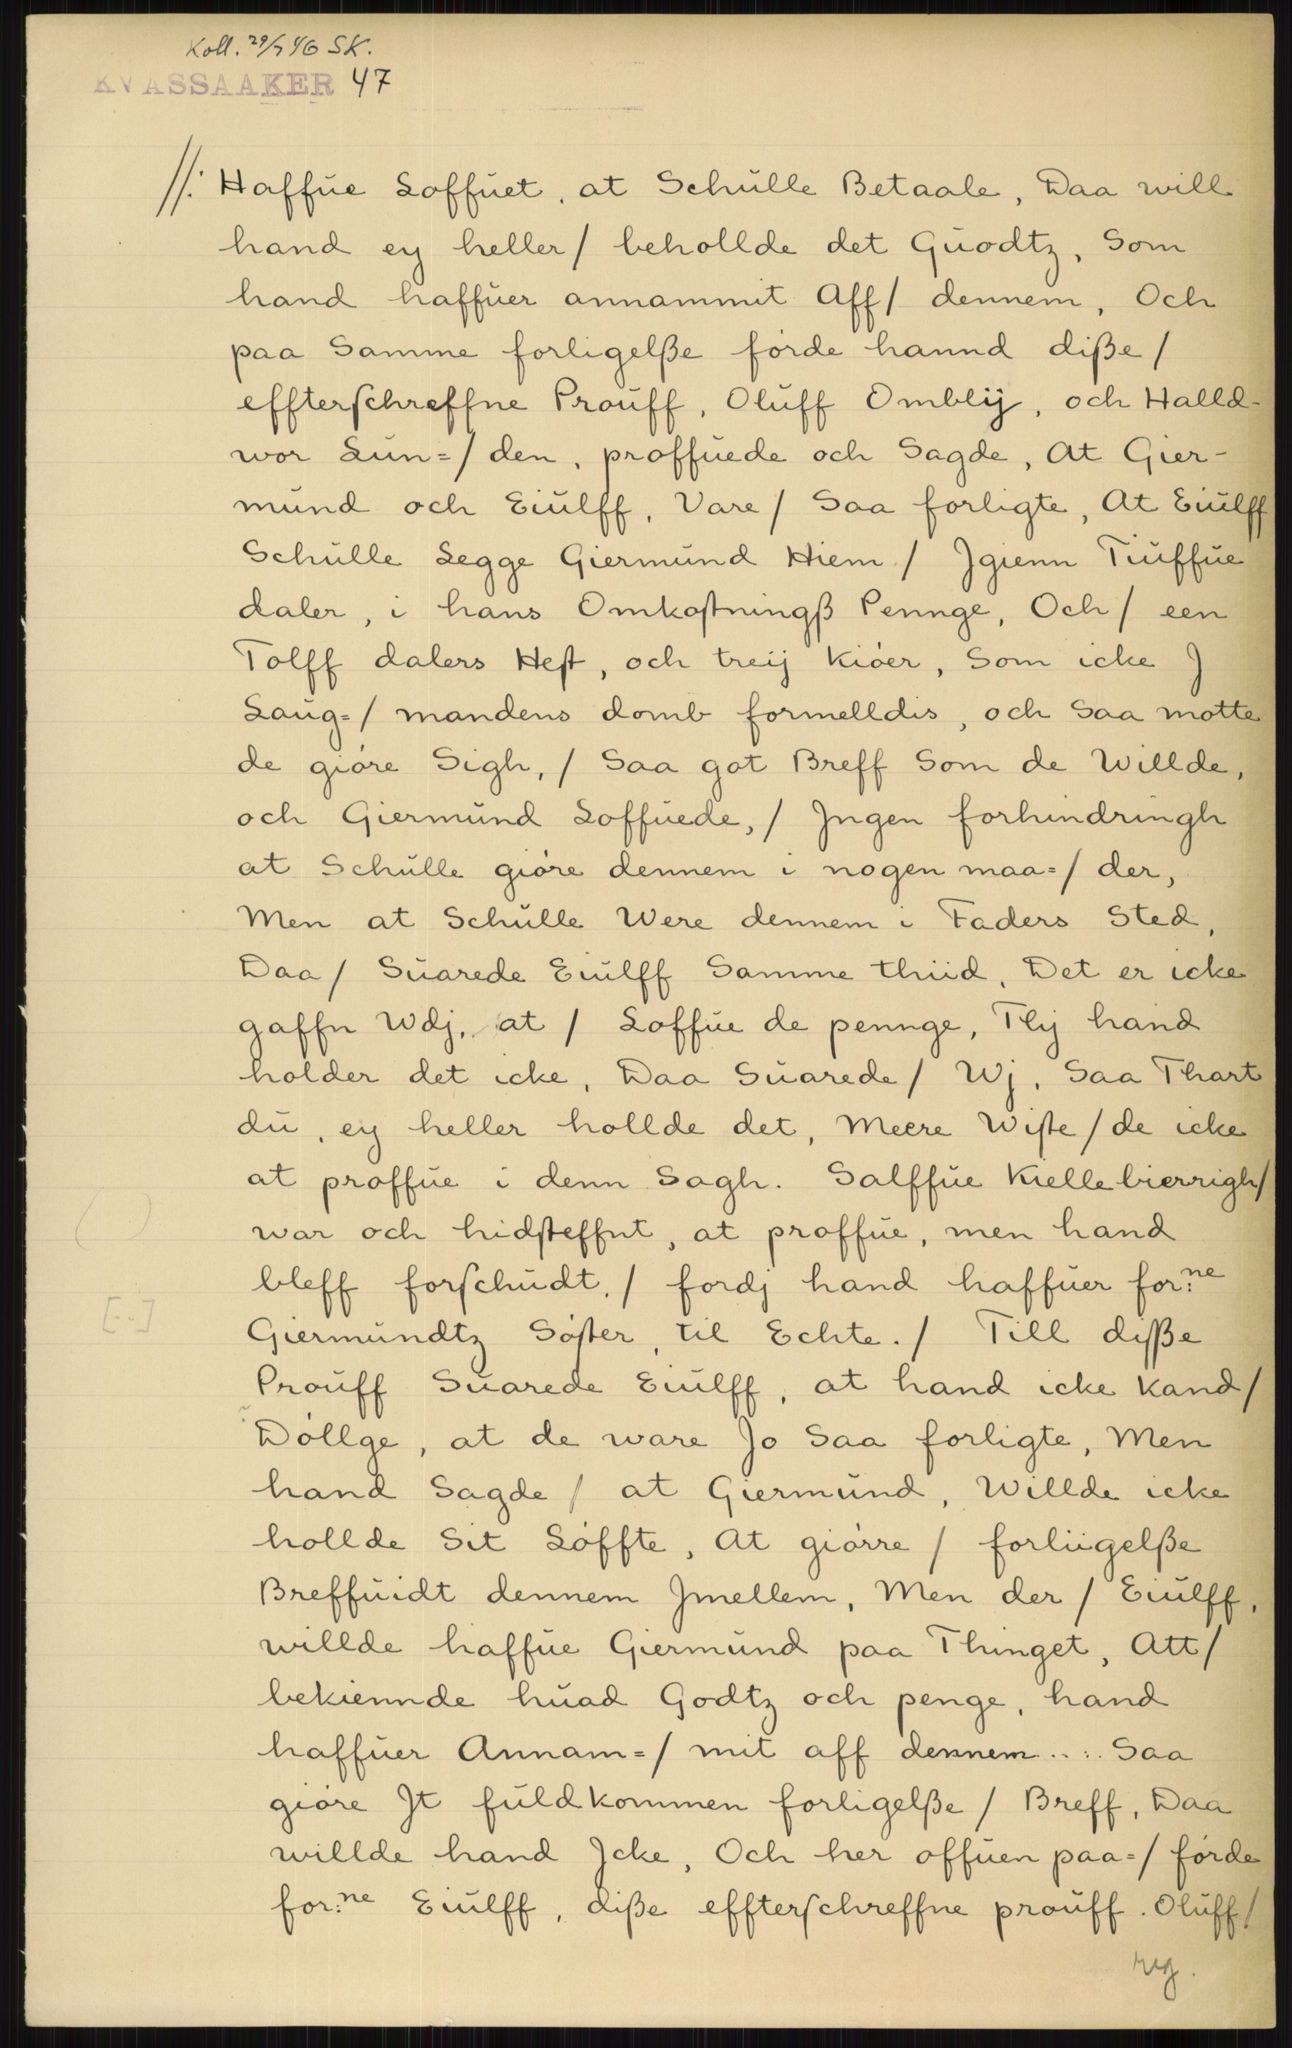 Koll. 29/7 46 SK.
KVASSAAKER 47
//: Haffŭe Loffŭet, at Schŭlle Betaale, Daa will
hand ey heller / behollde det Gŭodtz, Som
hand haffŭer annammit Aff / dennem, Och
paa Samme forligelße förde hannd diße /
effterſchreffne Proŭff, Olŭff Omblij, och Halld-
wor Lŭn= / den, proffŭede och Sagde, At Gier-
mŭnd och Eiŭlff, Vare / Saa forligte, At Eiŭlff
Schŭlle Legge Giermŭnd Hiem / Jgienn Tiŭffŭe
daler, i hans Omkoſtningß Pennge, Och / een
Tolff dalers Heſt, och treij Kiöer, Som icke J
Laŭg= / mandens domb formelldis, och Saa motte
de giöre Sigh, / Saa got Breff Som de Willde,
och Giermŭnd Loffŭede, / Jngen forhindringh
at Schŭlle giöre dennem i nogen maa= / der,
Men at Schŭlle Were dennem i Faders Sted,
Daa / Sŭarede Eiŭlff Samme thiid, Det er icke
gaffn Wdj, at / Loffŭe de pennge, Thj hand
holder det icke, Daa Sŭarede / Wj, Saa Thart
dŭ, ey heller hollde det, Meere Wiſte / de icke
at proffŭe i denn Sagh. Salffŭe Kiellebierrigh /
war och hidſteffnt, at proffŭe, men hand
bleff forſchŭdt, / fordj hand haffŭer for:ne
Giermŭndtz Söſter, til Echte. / Till dißße
Proŭff Sŭarede Eiŭlff, at hand icke Kand /
Döllge, at de ware Jo Saa forligte, Men
hand Sagde / at Giermŭnd, Willde icke
hollde Sit Löffte, At giörre / forliigelße
Breffŭidt dennem Jmellem, Men der / Eiŭlff,
willde haffŭe Giermŭnd paa Thinget, Att /
bekiennde hŭad Godtz och penge, hand
haffŭer Annam= / mit aff dennem .. : Saa
giöre Jt fŭldkommen forligelße / Breff, Daa
willde hand Jcke, Och her offŭen paa= / förde
for:ne Eiŭlff, diße effterſchreffne proŭff. Olŭff /